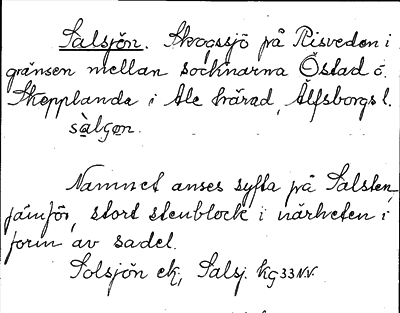 Salsjön. Skogssjö på Risveden i
gränsen mellan socknarna Östad o.
Skepplanda i Ale härad, Älfsborgs l.
sàlʃǫn.
Namnet anses syfta på Salsten,
jämför, stort stenblock i närheten i
form av sadel.
Solsjön ek, Salsj. KG33NV.